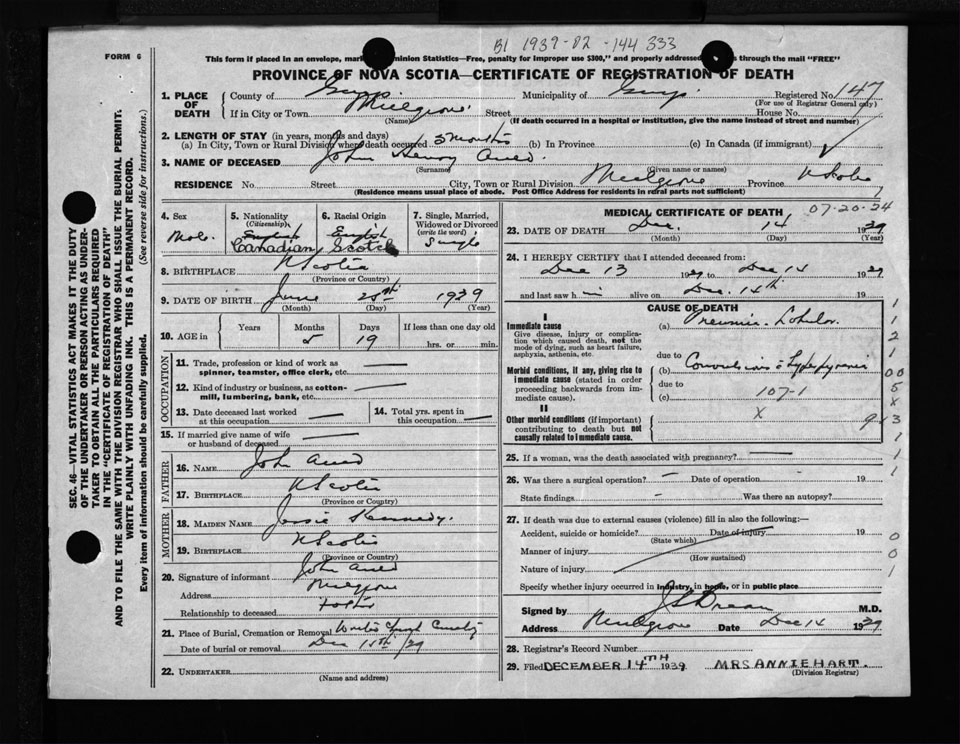 B1 1939-02-144333
FORM 6
This form if placed in an envelope, mar Dominion Statistics—Free, penalty for improper use $300," and properly addressed through the mail "FREE"
PROVINCE OF NOVA SCOTIA—CERTIFICATE OF REGISTRATION OF DEATH
1. PLACE OF DEATH
County of Guys. Municipality of Guys. Registered No. 147
(For use of Registrar General only)
If in City or Town Mulgrave Street House No.
(Name) (If death occurred in a hospital or institution, give the name instead of street and number)
2. LENGTH OF STAY (in years, months and days)
(a) In City, Town or Rural Division where death occurred 5 months (b) In Province (c) In Canada (if immigrant)
3. NAME OF DECEASED John Henry
(Surname) (Given name or names)
RESIDENCE No. Street City, Town or Rural Division Mulgrave Province N Scotia
(Residence means usual place of abode. Post Office Address for residents in rural parts not sufficient)
4. Sex
Male
5. Nationality (Citizenship)
English
Canadian
6. Racial Origin
English
Scotch
7. Single, Married, Widowed or Divorced (write the word)
Single
8. BIRTHPLACE N Scotia
(Province or Country)
9. DATE OF BIRTH June 25th 1939
(Month) (Day) (Year)
10. AGE in
Years Months Days If less than one day old
5 19 hrs. or min.
OCCUPATION
11. Trade, profession or kind of work as spinner, teamster, office clerk, etc.
12. Kind of industry or business, as cotton-mill, lumbering, bank, etc.
13. Date deceased last worked at this occupation
14. Total yrs. spent in this occupation
15. If married give name of wife or husband of deceased
FATHER
16. NAME John
17. BIRTHPLACE N Scotia
(Province or Country)
MOTHER
18. MAIDEN NAME Jessie Kennedy.
19. BIRTHPLACE N Scotia
(Province or Country)
20. Signature of informant John
Address Mulgrave
Relationship to deceased father
21. Place of Burial, Cremation or Removal
Date of burial or removal Dec 15th/39
22. UNDERTAKER
(Name and address)
MEDICAL CERTIFICATE OF DEATH
07-20-24
23. DATE OF DEATH Dec. 14 1939
(Month) (Day) (Year)
24. I HEREBY CERTIFY that I attended deceased from:
Dec 13 1939 to Dec 14 1939
and last saw him alive on Dec. 14th 19
CAUSE OF DEATH
I
Immediate cause
Give disease, injury or complication which caused death, not the mode of dying, such as heart failure, asphyxia, asthenia, etc.
(a)
due to
Morbid conditions, if any, giving rise to immediate cause (stated in order proceeding backwards from immediate cause).
(b) Convulsions
due to
(c) 107-1
II
Other morbid conditions (if important) contributing to death but not causally related to immediate cause.
X
25. If a woman, was the death associated with pregnancy?
26. Was there a surgical operation? Date of operation 19
State findings Was there an autopsy?
27. If death was due to external causes (violence) fill in also the following:—
Accident, suicide or homicide? Date of injury 19
(State which)
Manner of injury
(How sustained)
Nature of injury
Specify whether injury occurred in industry, in home, or in public place
Signed by M.D.
Address Mulgrave Date Dec 14 1939
28. Registrar's Record Number
29. Filed DECEMBER 14TH 1939 MRS ANNIE HART.
(Division Registrar)
SEC. 46—VITAL STATISTICS ACT MAKES IT THE DUTY
OF THE UNDERTAKER OR PERSON ACTING AS UNDER-
TAKER TO OBTAIN ALL THE PARTICULARS REQUIRED
IN THE "CERTIFICATE OF REGISTRATION OF DEATH"
AND TO FILE THE SAME WITH THE DIVISION REGISTRAR WHO SHALL ISSUE THE BURIAL PERMIT.
WRITE PLAINLY WITH UNFADING INK. THIS IS A PERMANENT RECORD.
Every item of information should be carefully supplied. (See reverse side for instructions.)